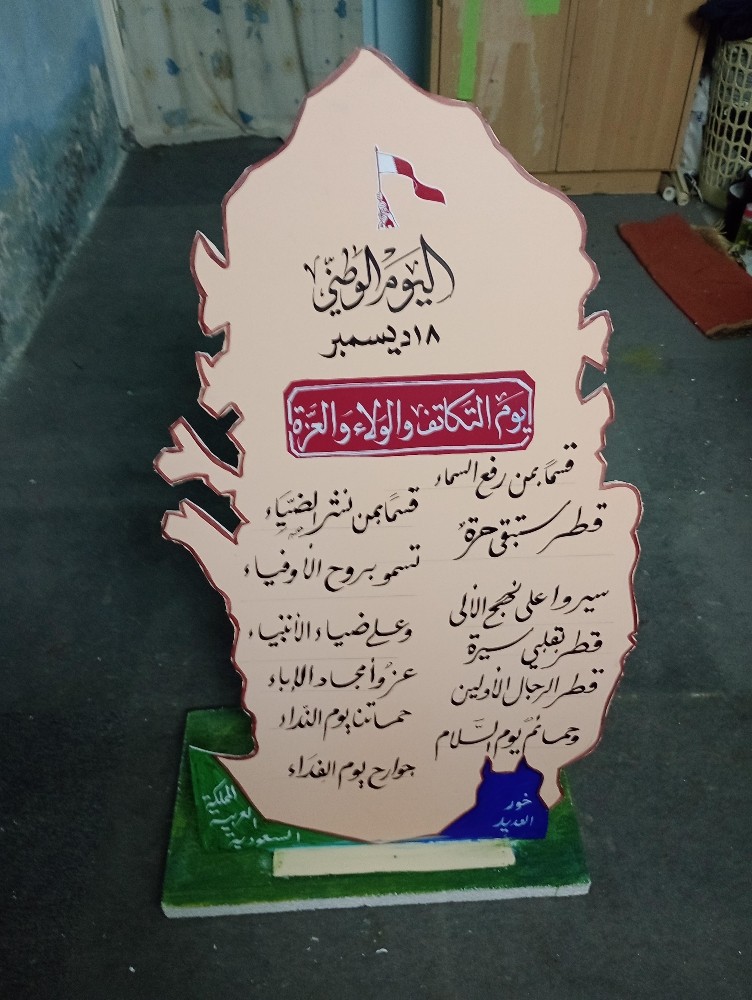 اليَومُ الوَطنيّ
١٨ ديسمبر
يَومُ التكاتف والولاء والعزّة
قسماً بمن رفع السماء
قسماً بمن نشر الضيَّاء
قطر ستبقى حرةٌ
تسمو بروح الأوفياء
سيروا على نهج الألى
وعلى ضياء الأنبياء
قطر بقلبي سيرة
عزٌ وأمجاد الإباء
قطر الرجال الأولين
حماتنا يوم النداء
وحمائمٌ يوم السَّلام
جوارح يوم الفداء
المملكة
العربية
السعودية
خور
العديد